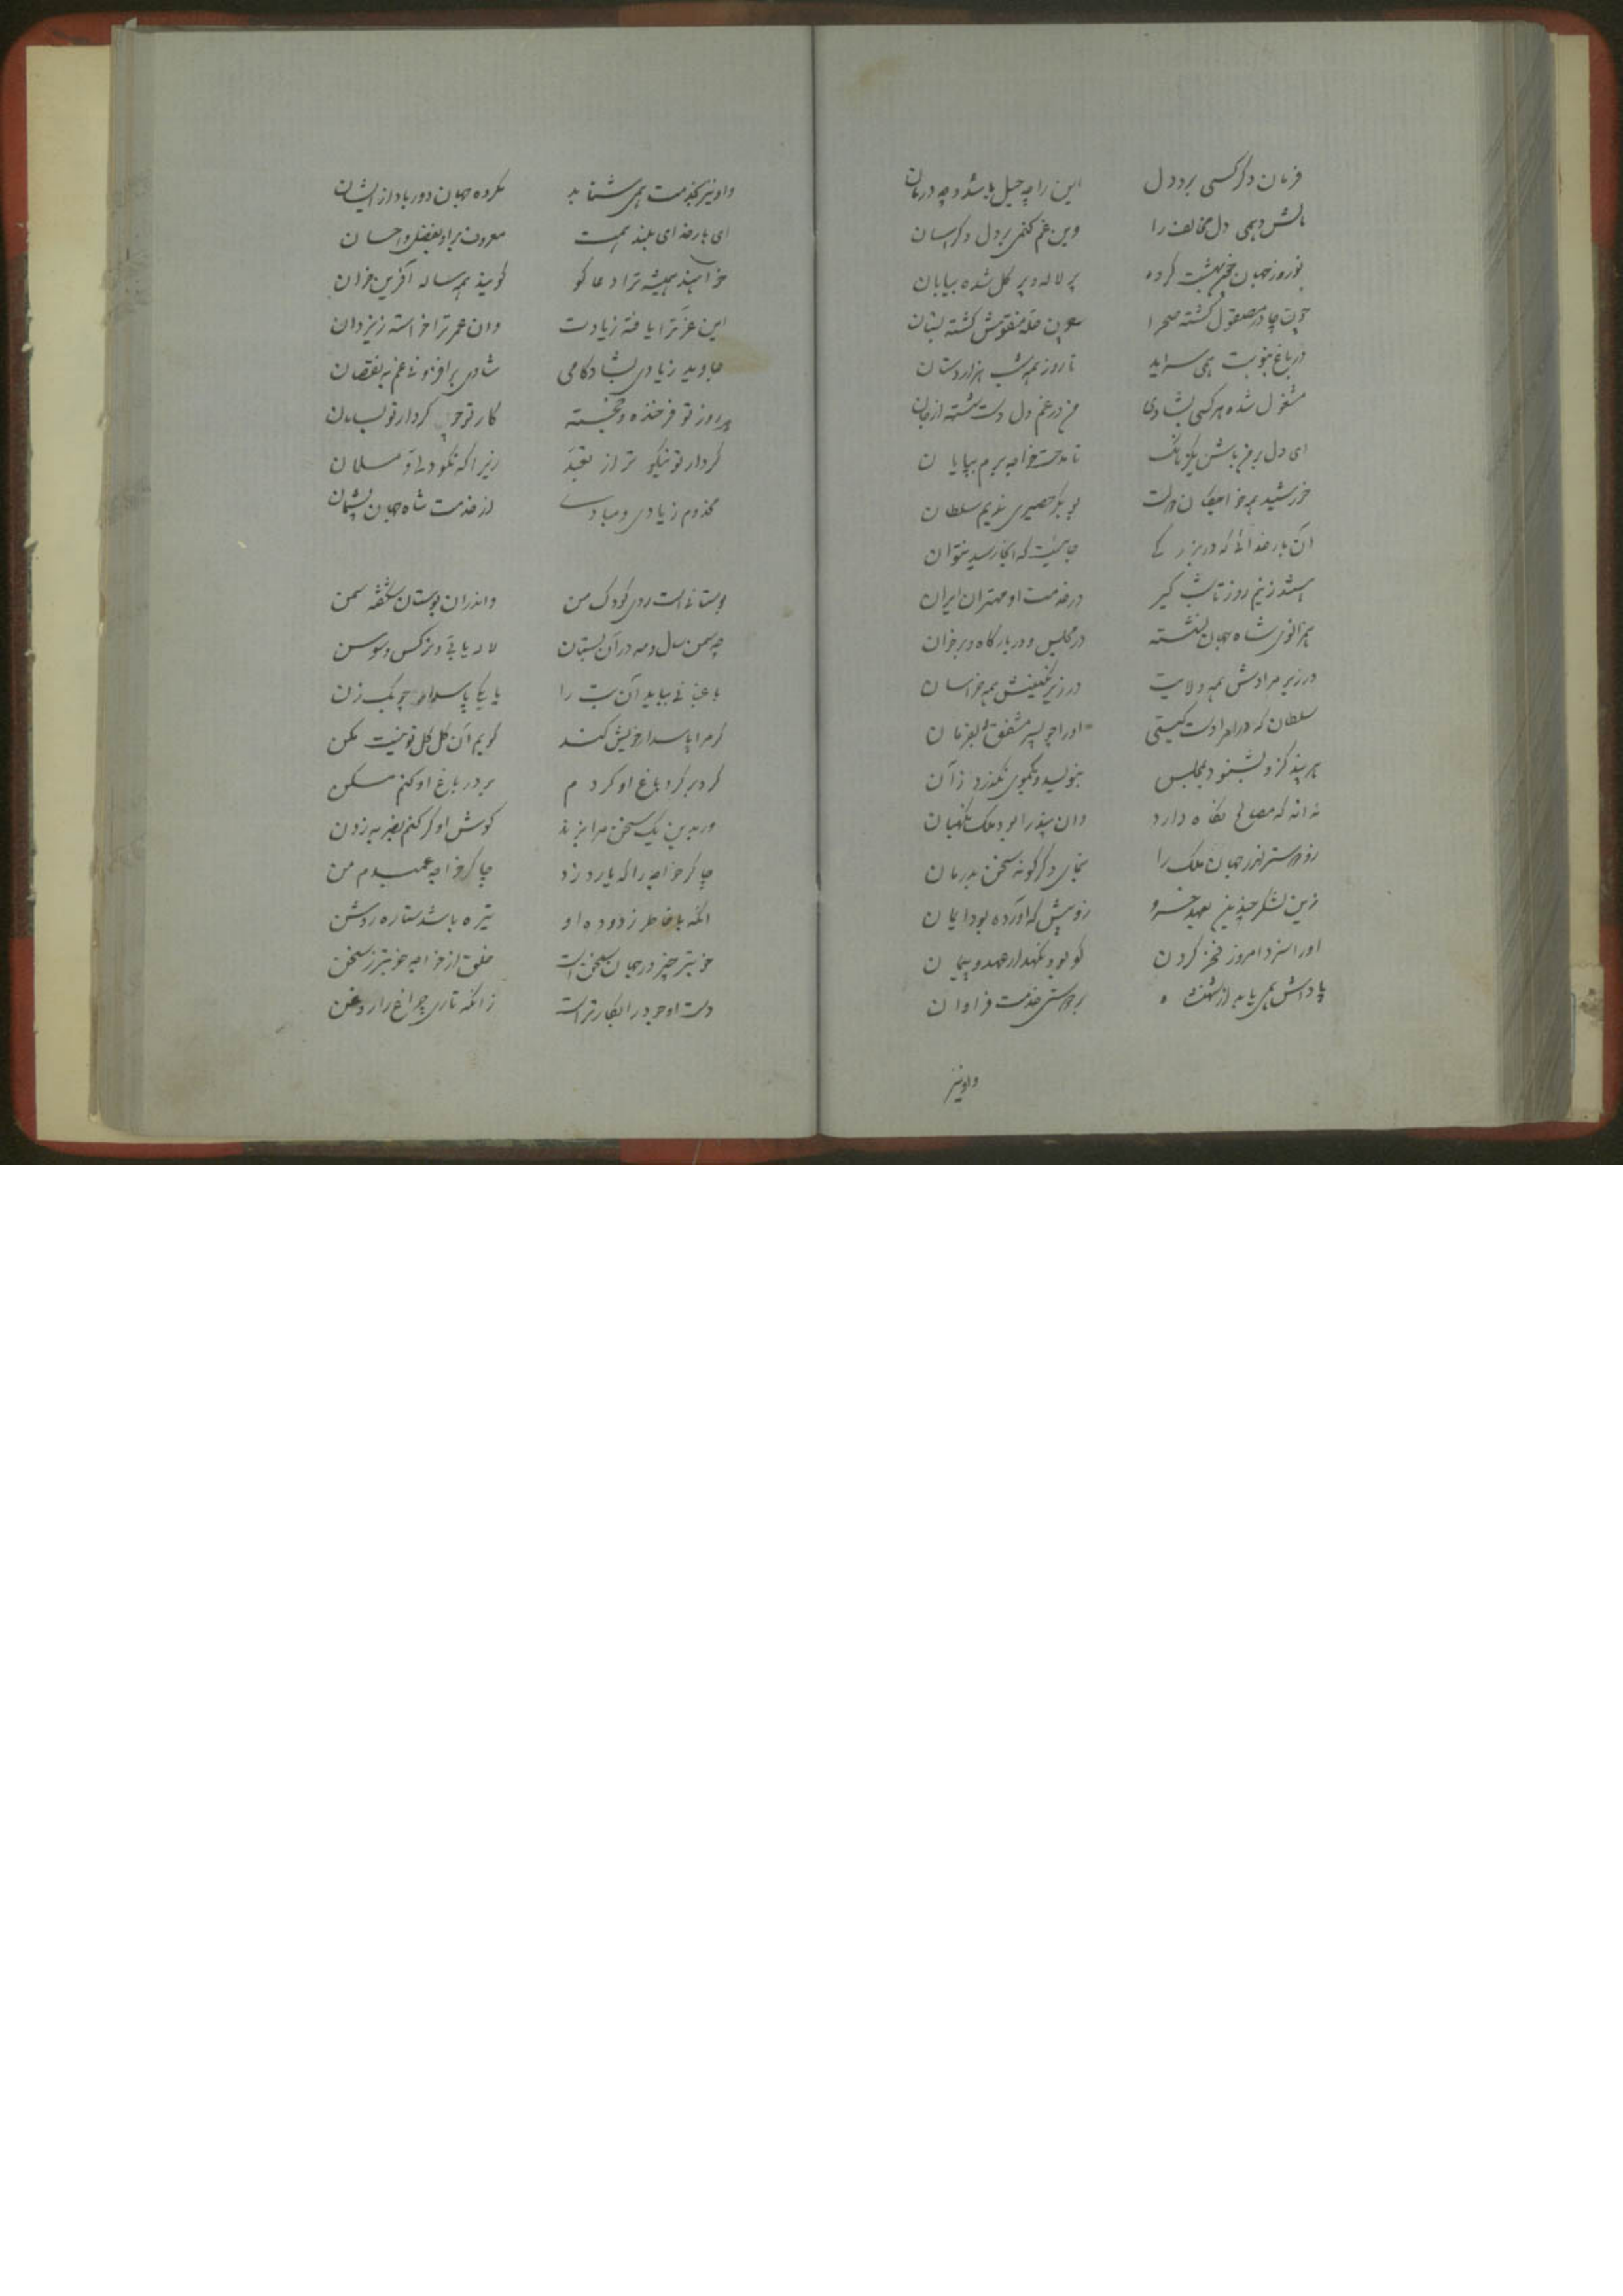 فرمان دگر کسی برد دل این را چه حیل باشد و چه درمان
مالش دهمی دل مخالف را وین غم کنمی بر دل دگر سان
نوروز جهان چون بهشت کرده پر لاله و پر گل شده بیابان
چون چادر مصقول گشته صحرا چون حله منقوش گشته بستان
در باغ بنوبت همی سراید تا روز همه شب هزاردستان
مشغول شده هر کسی بشادی من در غم دل دست شسته از جان
ای دل بر من باش یکزمانک تا مدحت خواجه برم بپایان
خورشید همه خواجگان دولت بوبکر حصیری ندیم سلطان
آن بارخدائی که در بزرگی جائیست که آنجا رسید نتوان
بیشند زنیم روز تا شبگیر در خدمت او مهتران ایران
همزانوی شاه جهان نشسته در مجلس و در بارگاه و بر خوان
در زیر مرادش همه ولایت در زیر نگینش همه خراسان
سلطان که در امر اوست گیتی او را چو پسر مشفق و بفرمان
هر پند کزو بشنود بمجلس بنویسد و یکموی نگذرد زان
داند که مصالح نگاه دارد وان پند را بود ملک نگهبان
زو دوستر اندر جهان ملک را بنمای و دگرگونه سخن مران
زین لشکر چندین بعهد خسرو زو پیش که آورده بود ایمان
او را سزد امروز فخر کردن کو بود نگهدار عهد و پیمان
پاداش همی یابد از شهنشاه بر دوستی و خدمت فراوان
واو نیز
واو نیز بخدمت همی شتابد مکروه جهان دور باد از ایشان
ای بارخدای بلند همت معروف براد و بفضل و احسان
خواهند همیشه ترا دعا گو گویند همه ساله آفرین خوان
این عز ترا یافته زیادت وان عمر ترا خواسته ز یزدان
جاوید زیادی بشادکامی شادی بر افزونی و غم به نقصان
هر روز تو فرخنده و خجسته کار تو چو کردار تو بسامان
کردار تو نیکوتر از تعبد زیرا که نکو دل و مسلمان
مخدوم زیادی و مبادی از خدمت شاه جهان پشیمان
بوستانی است روی کودک من واندران بوستان شکفته سمن
چه سمن سال و مه در آن بستان لاله یابی و نرگس و سوسن
باغبانی بباید آن بت را یا یکی پاسدار چوبک زن
گر مرا پاسدار خویش کند گویم آن گل گل تو نیست مکن
گرد بر گرد باغ او گردم بر در باغ او کنم مسکن
ور بدین یک سخن مرا بزند گوش او کر کنم بضربه زدن
چاکر خواجه را که یارد زد چاکر خواجه عمیدم من
آنکه با خاطر زدوده او تیره باشد ستاره روشن
خوبتر چیز در جهان سخن است خلق از خواجه خوبتر ز سخن
دست او جود را بکارتر است زانکه تاری چراغ را روغن